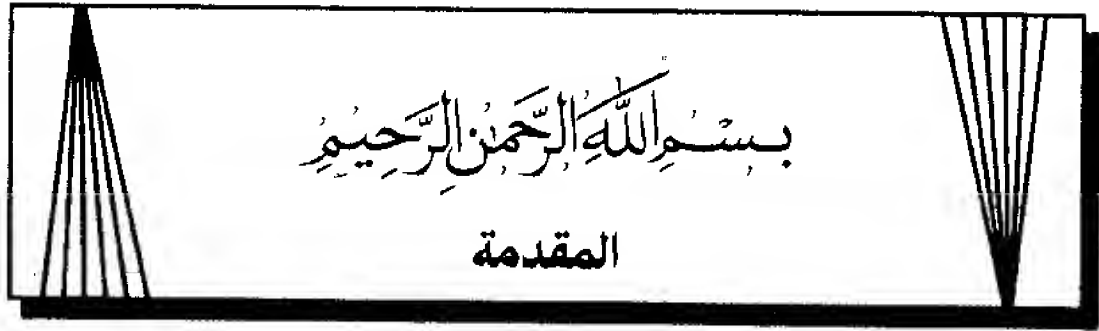 بِسْمِ اللَّهِ الرَّحْمَٰنِ الرَّحِيمِ
المقدمة